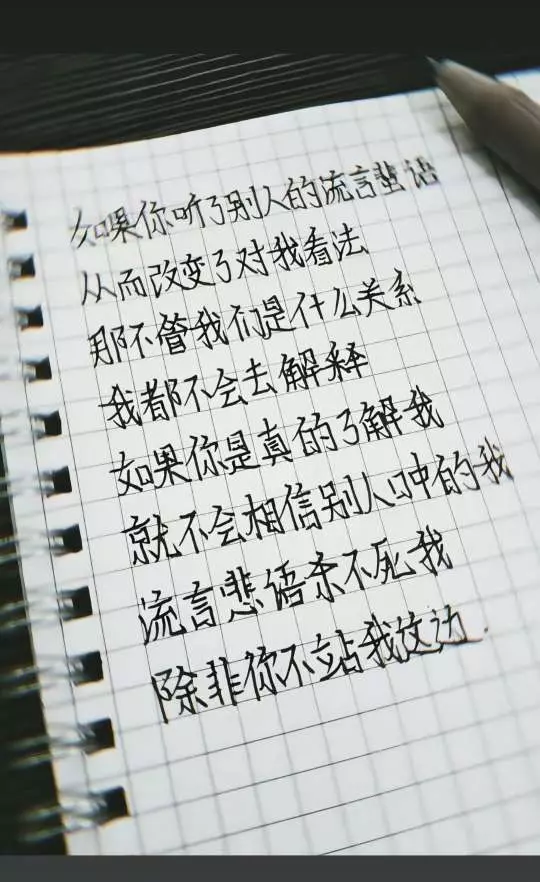 如果你听了别人的流言蜚语
从而改变了对我看法
那不管我们是什么关系
我都不会去解释
如果你是真的了解我
就不会相信别人口中的我
流言悲语杀不死我
除非你不站我这边.